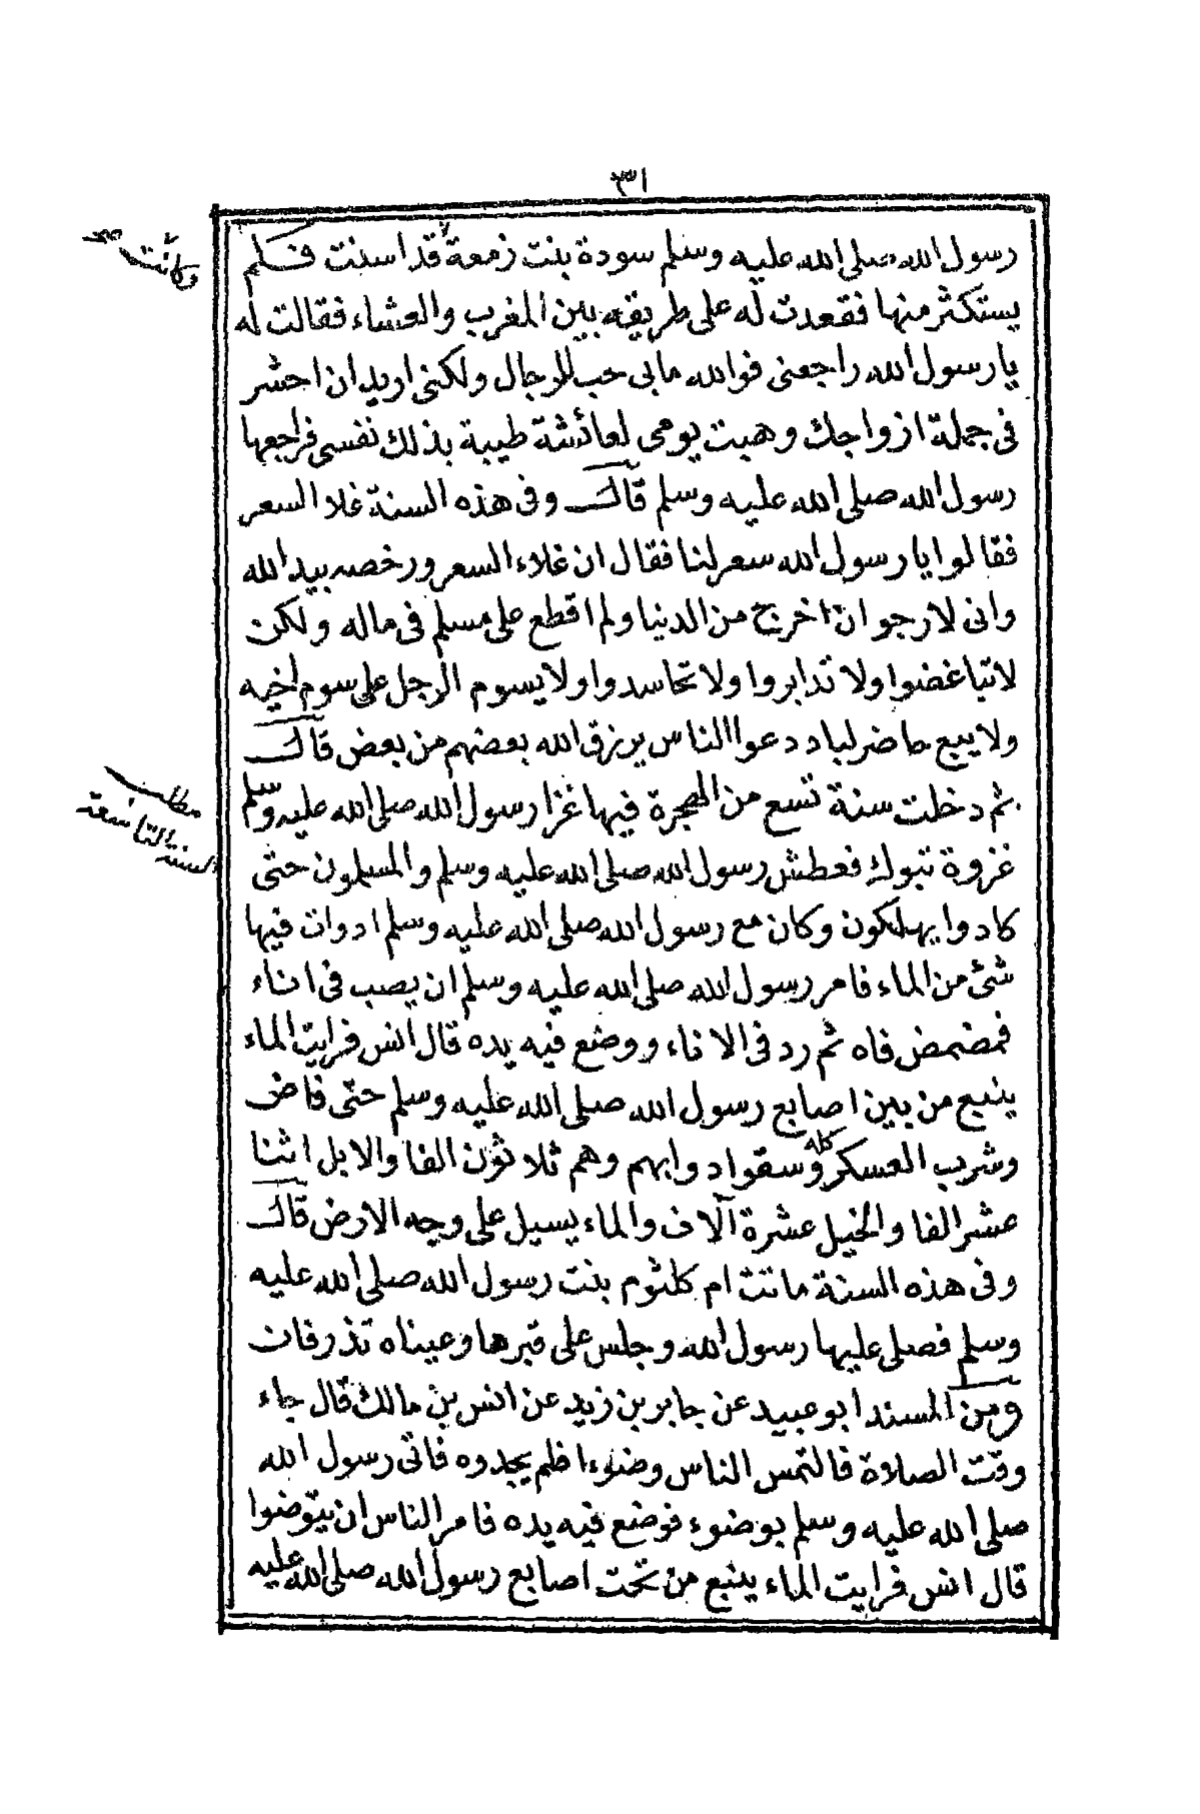 ٣١
رسول الله صلى الله عليه وسلم سودة بنت زمعة قد اسنت فلم
وكانت صح
يستكثر منها فقعدت له على طريقه بين المغرب والعشاء فقالت له
يا رسول الله راجعنى فوالله مابى حب للرجال ولكنى اريد ان احشر
فى جملة ازواجك وهبت يومى لعائشة طيبة بذلك نفسى فراجعها
رسول الله صلى الله عليه وسلم قال وفى هذه السنة غلا السعر
فقالوا يا رسول الله سعر لنا فقال ان غلاء السعر ورخصه بيد الله
وانى لارجو ان اخرج من الدنيا ولم اقطع على مسلم فى ماله ولكن
لا تباغضوا ولا تدابروا ولا تحاسدوا ولا يسوم الرجل على سوم اخيه
ولا يبيع حاضر لباد دعوا الناس يرزق الله بعضهم من بعض قال
مطلب
السنة التاسعة
ثم دخلت سنة تسع من الهجرة فيها غزا رسول الله صلى الله عليه وسلم
غزوة تبوك فعطش رسول الله صلى الله عليه وسلم والمسلمون حتى
كادوا يهلكون وكان مع رسول الله صلى الله عليه وسلم ادوات فيها
شئ من الماء فامر رسول الله صلى الله عليه وسلم ان يصب فى اناء
فمضمض فاه ثم رد فى الاناء ووضع فيه يده قال انس فرايت الماء
ينبع من بين اصابع رسول الله صلى الله عليه وسلم حتى فاض
وشرب العسكر كله وسقوا دوابهم وهم ثلاثون الفا والابل اثنا
عشر الفا والخيل عشرة آلاف والماء يسيل على وجه الارض قال
وفى هذه السنة ماتت ام كلثوم بنت رسول الله صلى الله عليه
وسلم فصلى عليها رسول الله وجلس على قبرها وعيناه تذرفان
ومن المسند ابو عبيد عن جابر بن زيد عن انس بن مالك قال جاء
وقت الصلاة فالتمس الناس وضوءا ظم يجدوه فاتى رسول الله
صلى الله عليه وسلم بوضوء فوضع فيه يده فامر الناس ان يتوضوا
قال انس فرايت الماء ينبع من تحت اصابع رسول الله صلى الله عليه